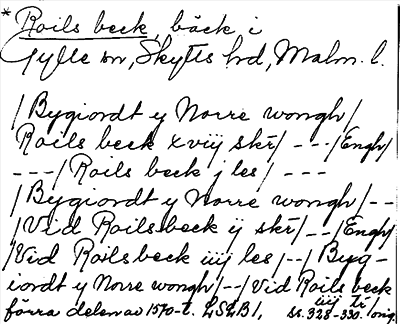 * Roils beck, bäck i
Gylle sn, Skytts hd, Malm. l.
/Bygiordt y Norre wongh/
Roils beck xviij skr̄/ - - -/Engh/
- - -/ Roils beck j les/ - - -
/Bygiordt y Norre wongh/ - -
/Vid Roilsbeck ij skr̄/ - -/Engh/
/Vid Roilsbeck iiij les/ - -/ Byg-
iordt y Norre wongh/ - -/Vid Roils beck
iiij
förra delen av 1570-t. LSLB1, ss. 328-330. orig.